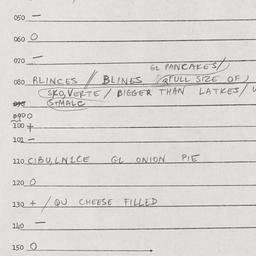 050 —
060 O
070 —
GL PANCAKES/
080 BLINCES // BLINES @FULL SIZE OF)
SKO,VERTE / BIGGER THAN LATKES/
SMALL
090 O
100 +
101 —
110 CIBU,LN2CE GL ONION PIE
120 O
130 + / QU CHEESE FILLED
140 —
150 O